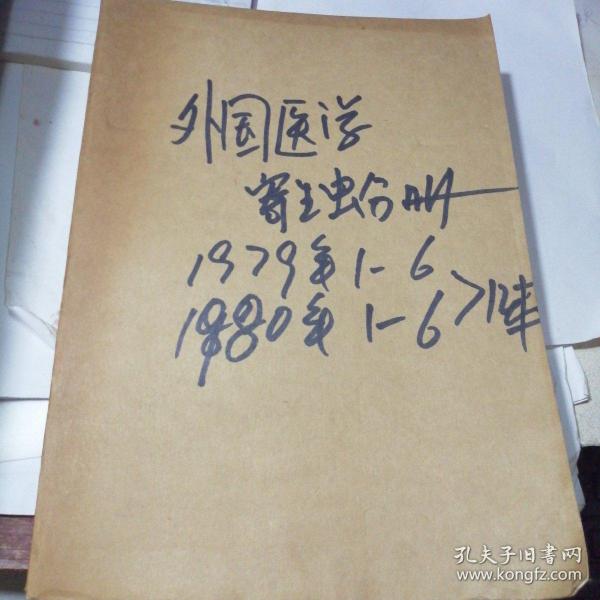 外国医学
寄生虫分册
1979年1-6
1980年1-6 >12本
孔夫子旧书网
www.kongfz.com